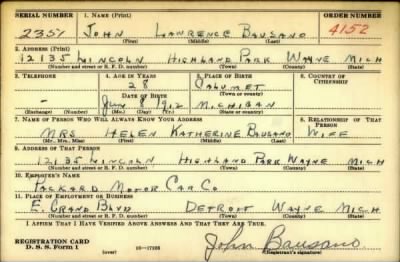 SERIAL NUMBER 1. NAME (Print) ORDER NUMBER
2351 JOHN LAWRENCE BAUSANO 4152
(First) (Middle) (Last)
2. ADDRESS (Print)
12135 LINCOLN HIGHLAND PARK WAYNE MICH
(Number and street or R. F. D. number) (Town) (County) (State)
3. TELEPHONE 4. AGE IN YEARS 5. PLACE OF BIRTH 6. COUNTRY OF CITIZENSHIP
28 CALUMET
DATE OF BIRTH (Town or county)
- 8 1912 MICHIGAN
(Exchange) (Number) (Mo.) (Day) (Yr.) (State or country)
7. NAME OF PERSON WHO WILL ALWAYS KNOW YOUR ADDRESS 8. RELATIONSHIP OF THAT PERSON
MRS HELEN KATHERINE BAUSANO WIFE
(Mr., Mrs., Miss) (First) (Middle) (Last)
9. ADDRESS OF THAT PERSON
12135 LINCOLN HIGHLAND PARK WAYNE MICH
(Number and street or R. F. D. number) (Town) (County) (State)
10. EMPLOYER'S NAME
PACKARD MOTOR CAR CO
11. PLACE OF EMPLOYMENT OR BUSINESS
E. GRAND BLVD DETROIT WAYNE MICH
(Number and street or R. F. D. number) (Town) (County) (State)
I AFFIRM THAT I HAVE VERIFIED ABOVE ANSWERS AND THAT THEY ARE TRUE.
REGISTRATION CARD
D. S. S. Form 1 (over) John Bausano
(Registrant's signature)